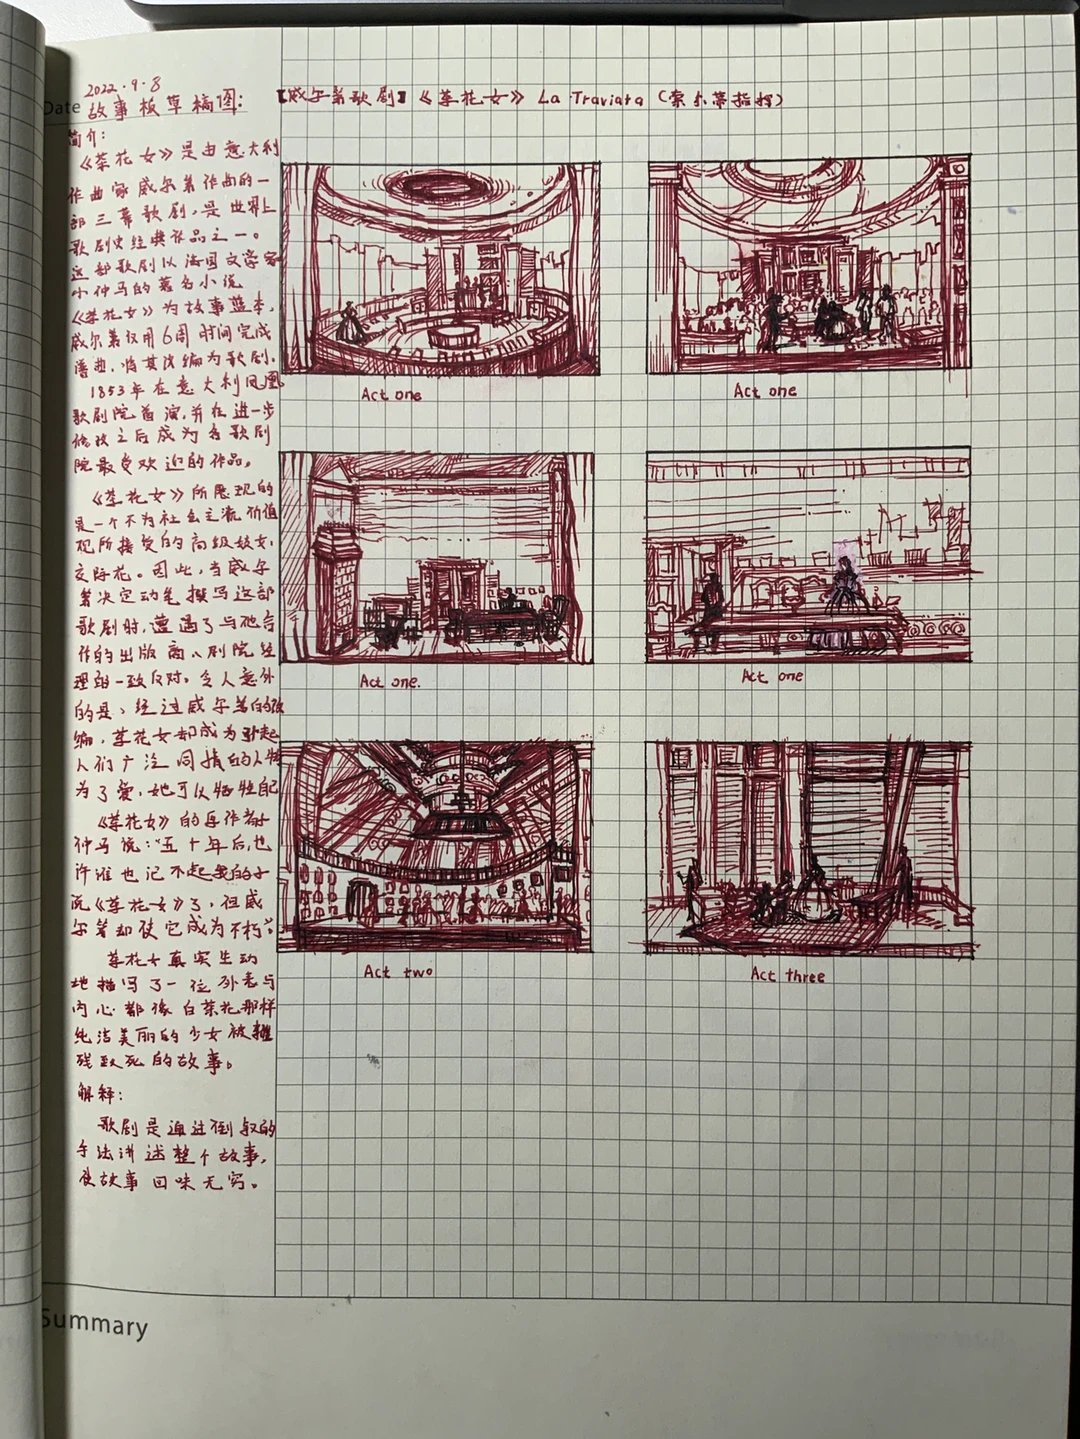 2022.9.8
Date
故事板草稿图:
【威尔第歌剧】《茶花女》 La Traviata (索尔蒂指挥)
简介:
《茶花女》是由意大利
作曲家威尔第作曲的一
部三幕歌剧,是世界上
歌剧史经典作品之一。
这部歌剧以法国文学家
小仲马的著名小说
《茶花女》为故事蓝本,
威尔第仅用6周时间完成
谱曲,将其改编为歌剧.
1853年在意大利凤凰
歌剧院首演,并在进一步
修改之后成为各歌剧
院最受欢迎的作品。
《茶花女》所展现的
是一个不为社会主流价值
观所接受的高级妓女,
交际花。因此,当威尔
第决定动笔撰写这部
歌剧时,遭遇了与他合
作的出版商、剧院经
理的一致反对。令人意外
的是、经过威尔第的改
编,茶花女却成为引起
人们广泛同情的人物
为了爱,她可以牺牲自己
《茶花女》的原作者小
仲马说:“五十年后,也
许谁也记不起我的小
说《茶花女》了,但威
尔第却使它成为不朽”。
茶花女真实生动
地描写了一位外表与
内心都像白茶花那样
纯洁美丽的少女被摧
残致死的故事。
解释:
歌剧是通过倒叙的
手法讲述整个故事,
使故事回味无穷。
Act one
Act one
Act one.
Act one
Act two
Act three
Summary